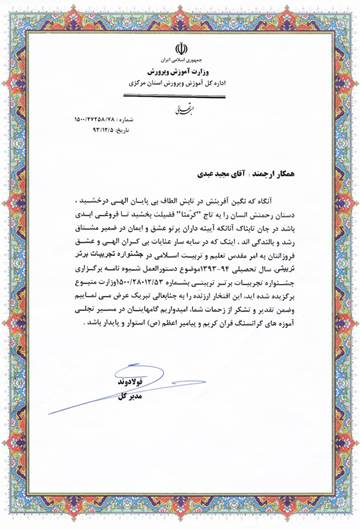 جمهوری اسلامی ایران
وزارت آموزش و پرورش
اداره کل آموزش و پرورش استان مرکزی
شماره : ۱۵۰۰/۴۷۲۵۸/۷۸
تاریخ: ۹۳/۱۲/۵
همکار ارجمند : آقای مجید عبدی
آنگاه که نگین آفرینش در تابش الطاف بی پایان الهی درخشید ،
دستان رحمتش انسان را به تاج "کرّمنا" فضیلت بخشید تا فروغی ابدی
باشد در جان تابناک آنانکه آیینه داران پرتو عشق و ایمان در ضمیر مشتاق
رشد و بالندگی اند . اینک که در سایه سار عنایات بی کران الهی و عشق
فروزانتان به امر مقدس تعلیم و تربیت اسلامی در جشنواره تجربیات برتر
تربیتی سال تحصیلی ۹۴-۱۳۹۳موضوع دستورالعمل شیوه نامه برگزاری
جشنواره تجربیات برتر تربیتی بشماره ۱۵۰۰/۲۸۰۱۲/۵۳وزارت متبوع
برگزیده شده اید، این افتخار ارزنده را به جنابعالی تبریک عرض می نماییم
وضمن تقدیر و تشکر از زحمات شما، امیدواریم گامهایتان در مسیر تجلی
آموزه های گرانسنگ قرآن کریم و پیامبر اعظم (ص) استوار و پایدار باشد .
فولادوند
مدیر کل